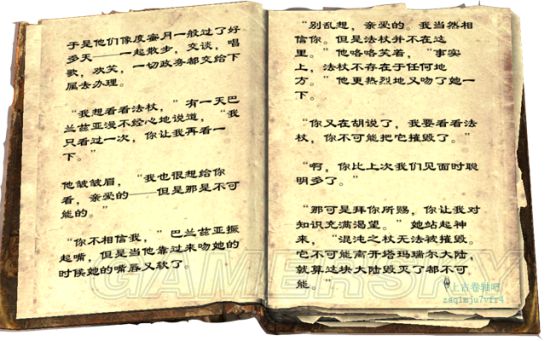 于是他们像度蜜月一般过了好
多天——一起散步，交谈，唱
歌，欢笑，一切政务都交给下
属去办理。
“我想看看法杖，”有一天巴
兰兹亚漫不经心地说道，“我
只看过一次，你让我再看一
下。”
他皱皱眉，“我也很想给你
看，亲爱的——但是那是不可
能的。”
“你不相信我，”巴兰兹亚振
起嘴，但是当他靠过来吻她的
时候她的嘴唇又软了。
“别乱想，亲爱的。我当然相
信你。但是法杖并不在这
里。”他咯咯笑着，“事实
上，法杖不存在于任何地
方。”他更热烈地又吻了她一
下。
“你又在胡说了，我要看看法
杖，你不可能把它摧毁了。”
“啊，你比上次我们见面时聪
明多了。”
“那可是拜你所赐，你让我对
知识充满渴望。”她站起神
来，“混沌之杖无法被摧毁。
它不可能离开塔玛瑞尔大陆，
就算这块大陆毁灭了都不可
能。”
上古卷轴吧
zaqimju7vfr4
GAMERSKY